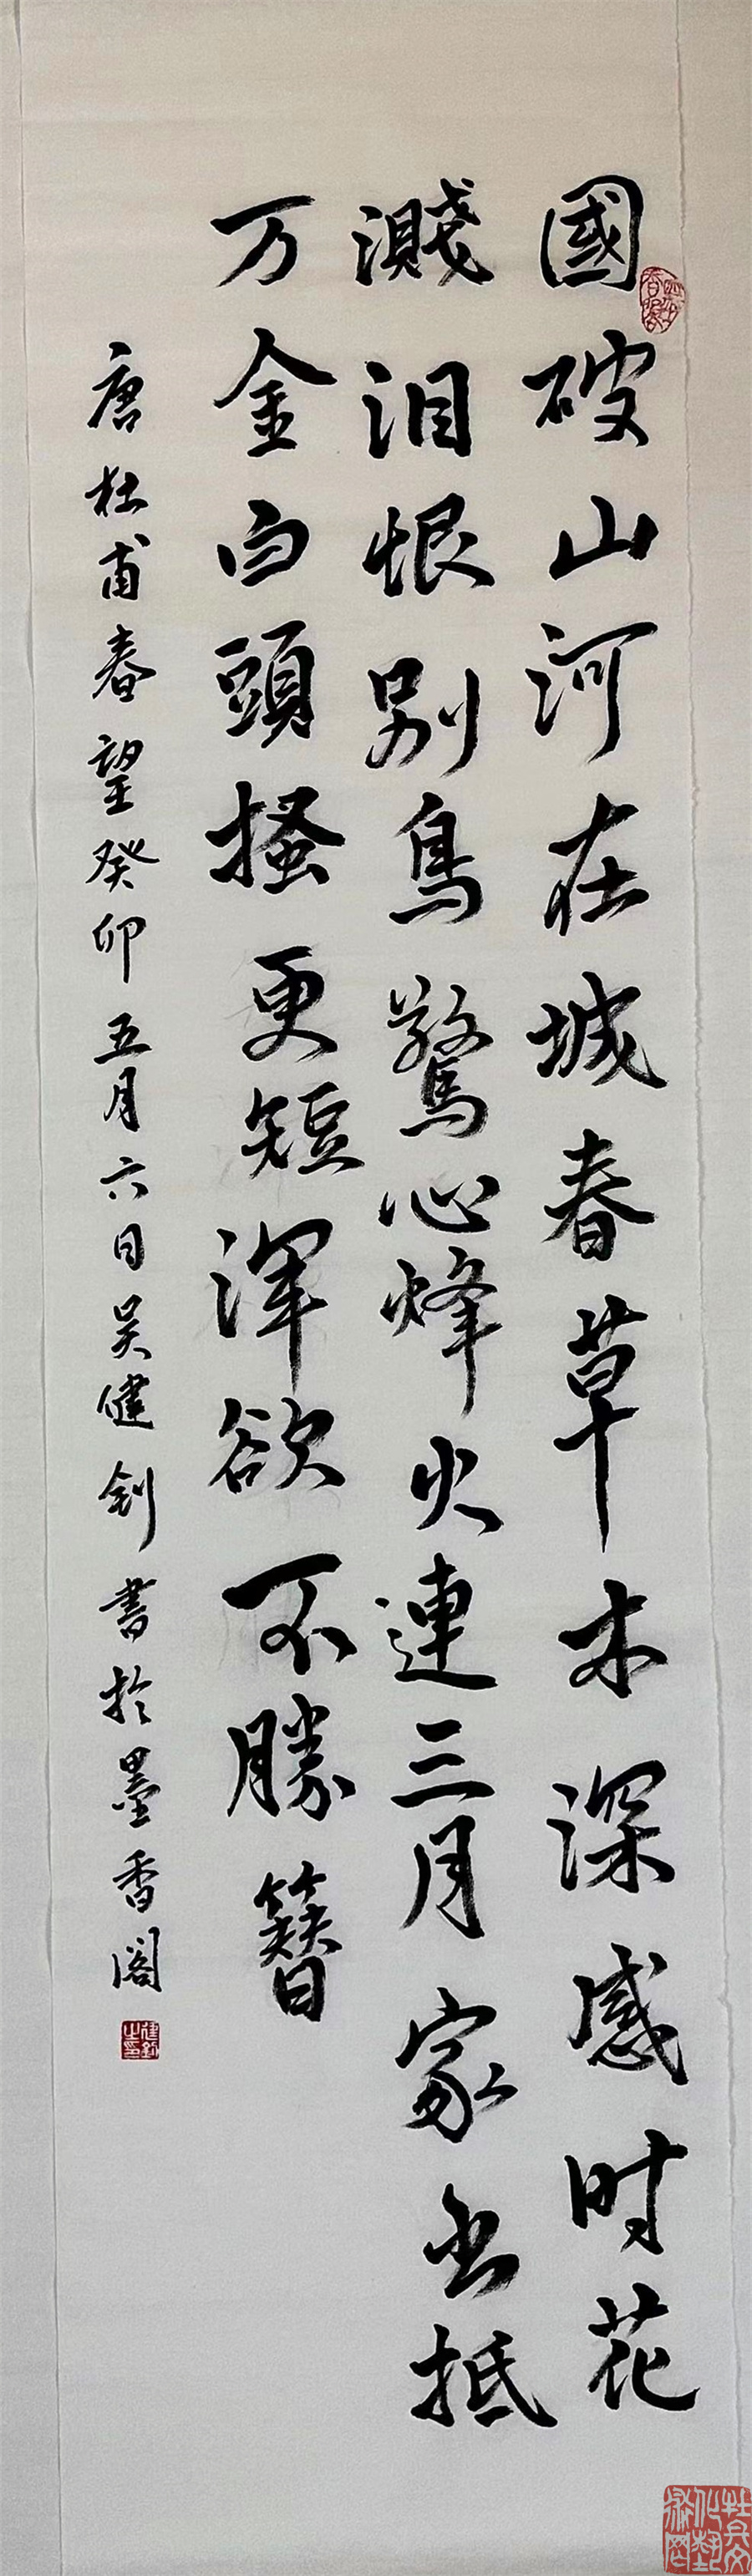 國破山河在城春草木深感时花
濺泪恨别鳥驚心烽火連三月家书抵
万金白頭搔更短渾欲不勝簪
唐杜甫春望癸卯五月六日吴健钊書於墨香阁